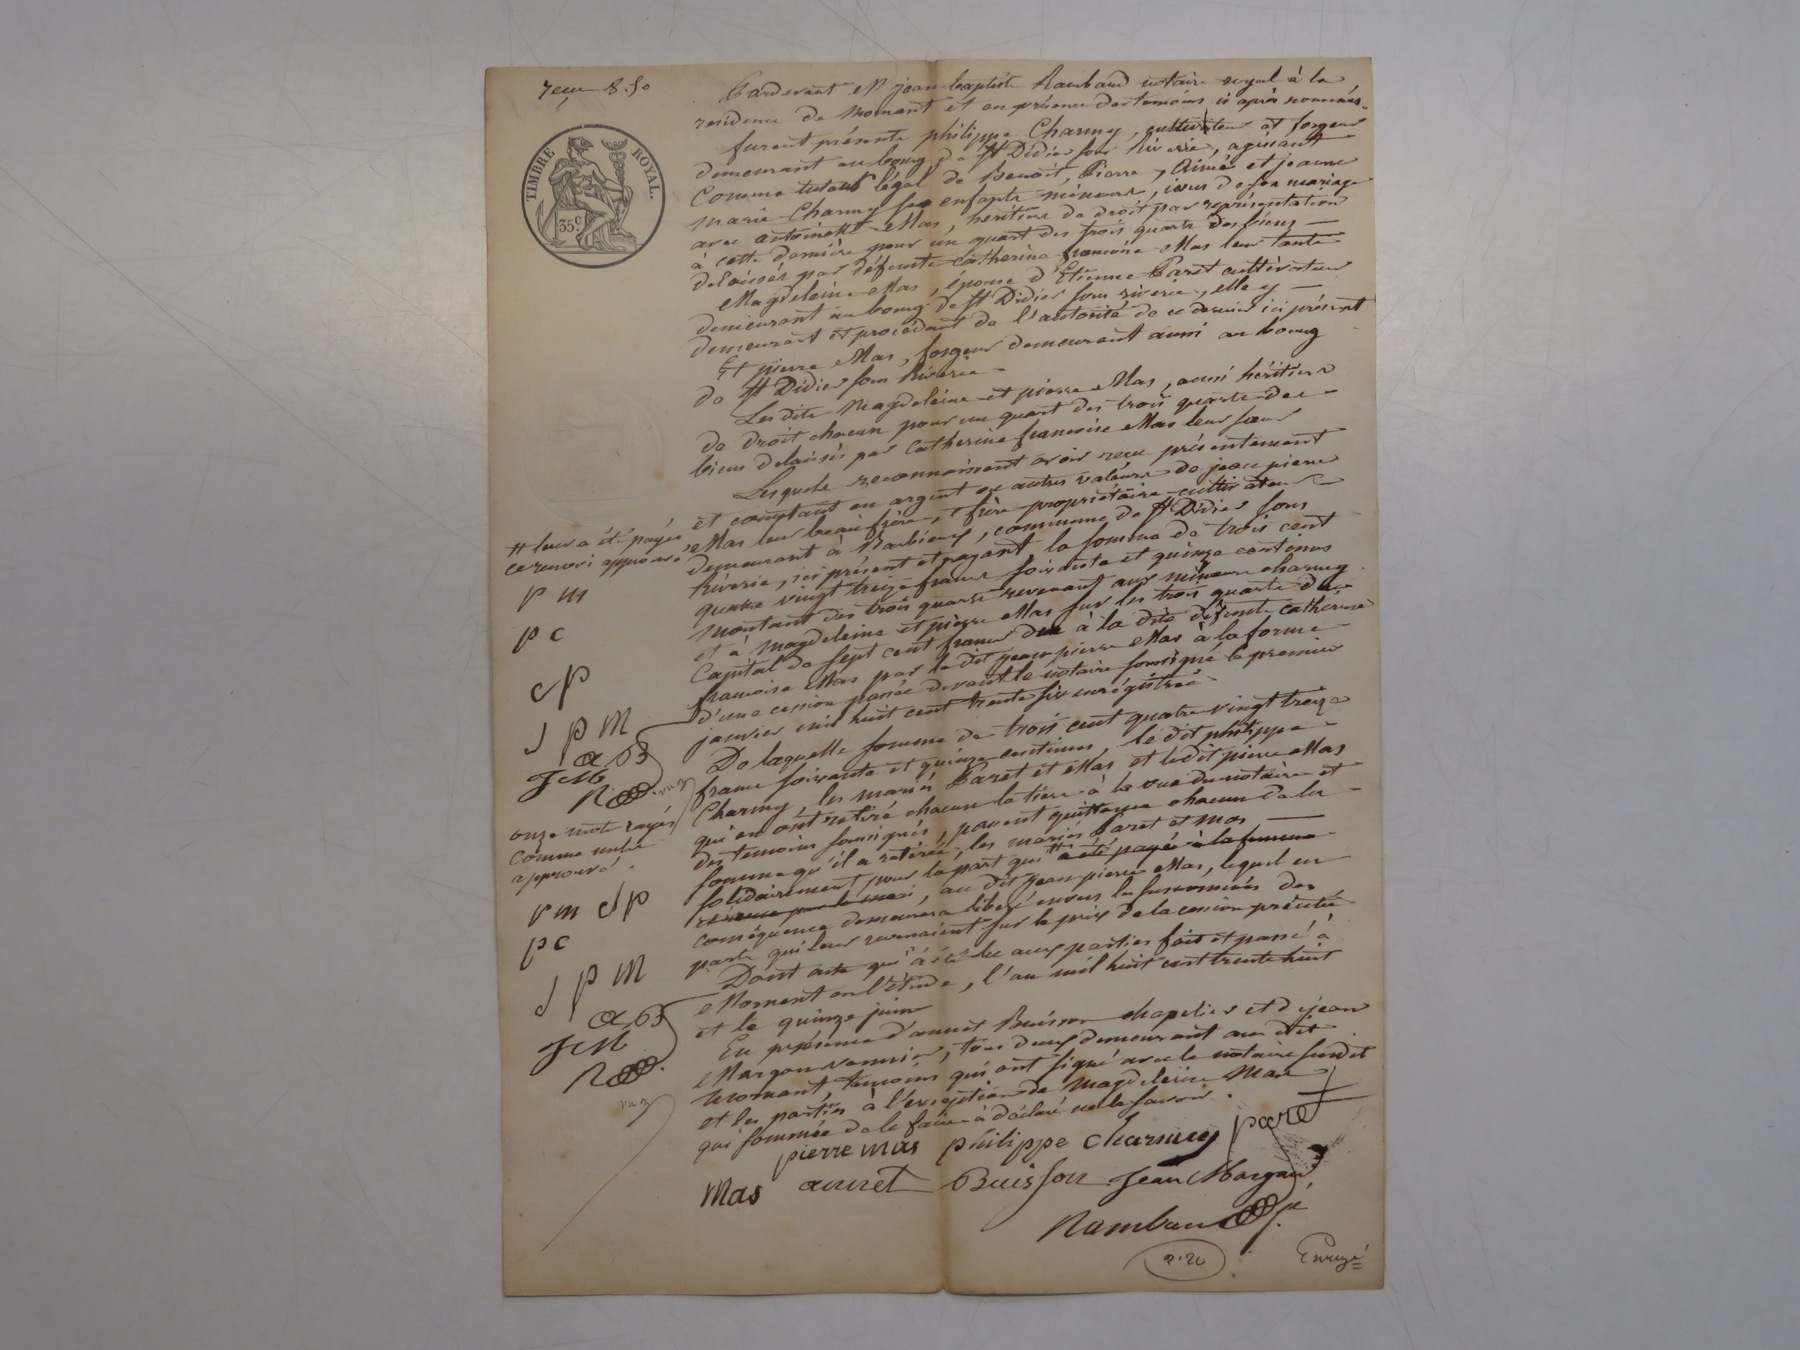 reçu 8.50
TIMBRE ROYAL.
35 c.
Pardevant Me jean-baptiste Rambaud notaire royal à la
residence de Mornant et en présence des temoins ci après nommés
furent présents philippe Charmy, cultivateur et forgeur
demeurant au bourg de St Didier sous Riverie, agissant
comme tuteur légal de Benoit, Pierre, Aimée et jeanne
marie Charmy ses enfants mineurs, issus de son mariage
avec antoinette Mas, heritiers de droit par représentation
à cette dernière pour un quart des trois quarts des biens
delaissés par défunte catherine françoise Mas leur tante
Magdeleine Mas, épouse d'Etienne Paret cultivateur
demeurant au bourg de St Didier sous riverie, elle y
demeurant et procédant de l'autorité de ce dernier ici présent
Et pierre Mas, forgeur demeurant aussi au bourg
de St Didier sous Riverie
Les dits Magdeleine et pierre Mas, aussi héritiers
de droit chacun pour un quart des trois quarts des
biens delaissés par Catherine françoise Mas leur sœur
Lesquels reconnaissent avoir reçu présentement
et comptant en argent ou autres valeurs de jean pierre
Mas leur beau frère, et frère propriétaire cultivateur
demeurant à , commune de St Didier sous
Riverie, ici présent et payant, la somme de trois cent
quatre vingt treize francs soixante et quinze centimes
montant des trois quarts revenant aux mineurs charmy
et à magdeleine et pierre Mas sur les trois quarts du
capital de sept cent francs due à la dite défunte catherine
françoise Mas par le dit jean pierre Mas à la forme
d'une cession passée devant le notaire soussigné le premier
janvier mil huit cent trente six enrégistrée
De laquelle somme de trois cent quatre vingt treize
francs soixante et quinze centimes, le dit philippe
Charmy, les mariés Paret et Mas et ledit pierre Mas
qui en ont retiré chacun le tiers à la vue du notaire et
des temoins soussignés, passent quittance chacun de la
somme qu'il a retirée, les mariés Paret et Mas
solidairement pour la part qui # a été payée à la femme
 par le mari, au dit jean pierre Mas, lequel en
conséquence demeurera libéré envers les susnommés des
parts qui leur revenaient sur le prix de la cession précitée
Dont acte qui a été lu aux parties fait et passé à
Mornant en l'étude, l'an mil huit cent trente huit
et le quinze juin
En présence d'annet Buisson chapelier et de jean
Margan vannier, tous deux demeurant au dit
Mornant, temoins qui ont signé avec le notaire susdit
et les parties à l'exception de Magdeleine Mas
qui sommée de le faire a déclaré ne le savoir.
# leur a été payée
ce renvoi approuvé
p m
p c
e p
J p M
a B
J M
R
onze mots rayés
comme nuls
approuvé.
p m e p
p c
J p M
a B
J M
R
pierre mas philippe charmey paret
Mas annet Buisson Jean Margan
Rambaud
2.20
Enregé